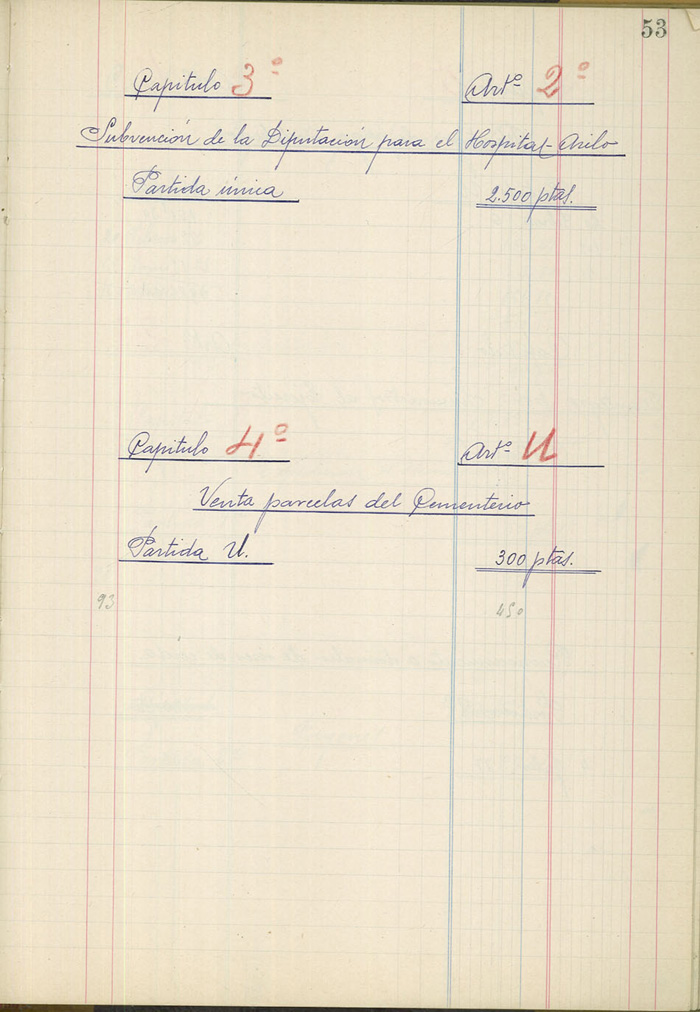 53
Capitulo 3º Artº 2º
Subvención de la Diputación para el Hospital-Asilo
Partida única 2.500 ptas.
Capitulo 4º Artº U
Venta parcelas del Cementerio
Partida U. 300 ptas.
93 450